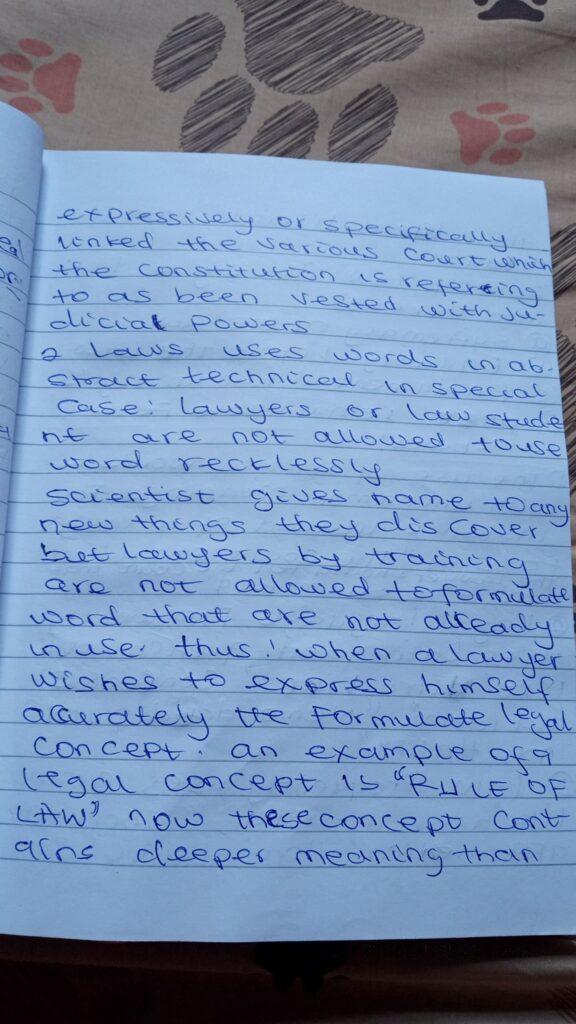 expressively or specifically
linked the various court which
the constitution is refereing
to as been vested with ju-
dicial powers
2 Laws uses words in ab-
stract technical in special
case: lawyers or law stude
nt are not allowed touse
word recklessly
scientist gives name to any
new things they discover
but lawyers by training
are not allowed toformulate
word that are not already
in use. thus! when a lawyer
wishes to express himself
accurately tte formulate legal
concept. an example of a
legal concept is "RULE OF
LAW" now these concept cont-
ains deeper meaning than